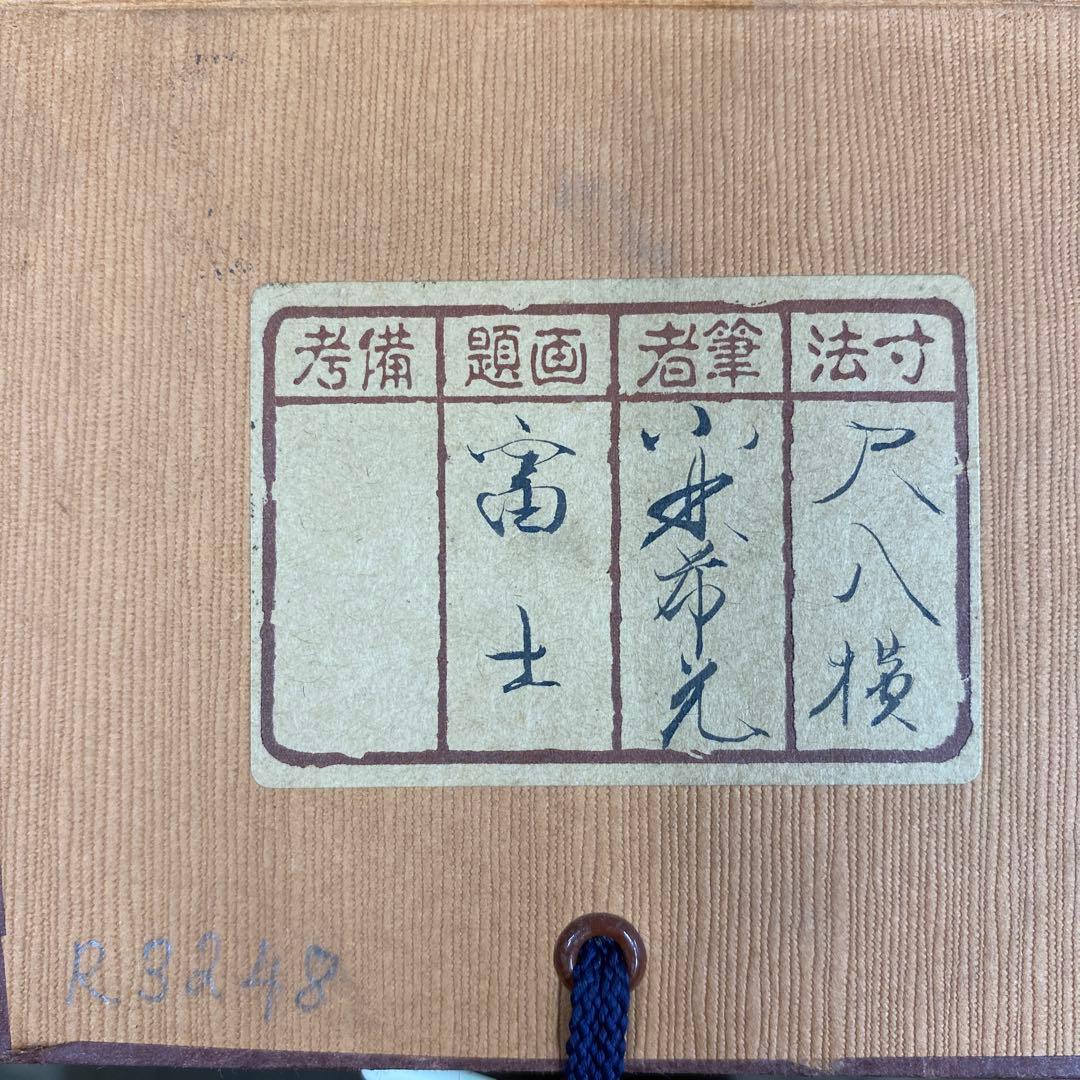 寸法
尺八横
筆者
小林希光
画題
富士
備考
R3248